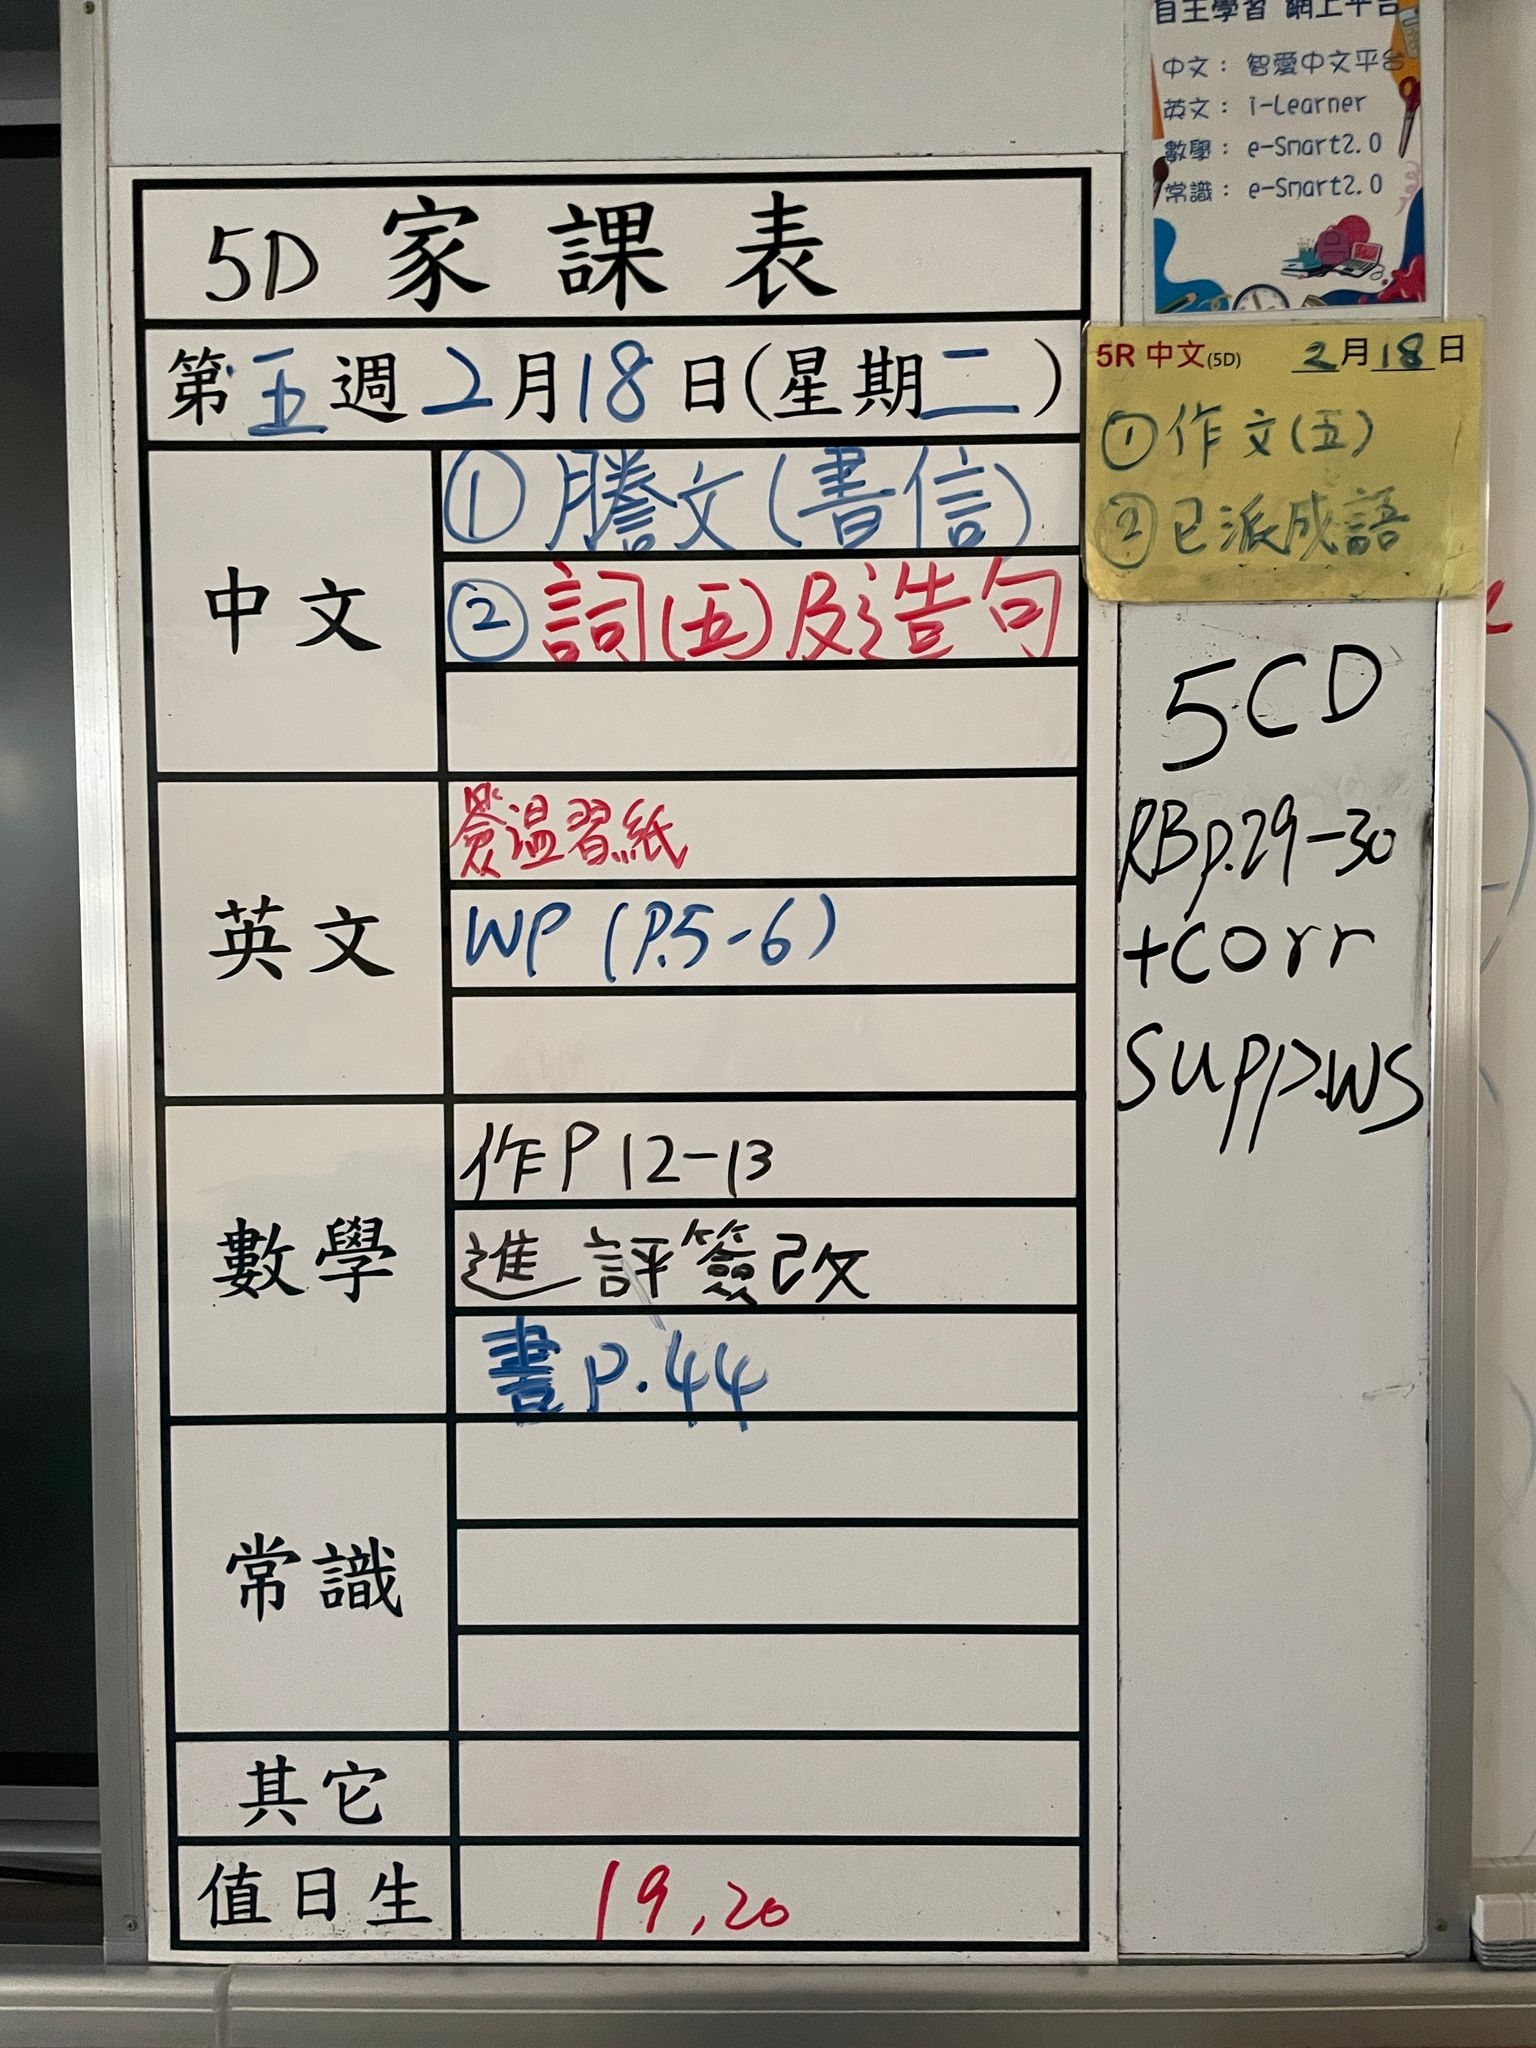 自主學習 網上平台
中文： 智愛中文平台
英文： i-Learner
數學： e-Smart2.0
常識： e-Smart2.0
5D 家課表
第五週2月18日(星期二)
中文
①謄文(書信)
②詞(五)及造句
英文
簽溫習紙
WP (P.5-6)
數學
作P12-13
進評簽改
書P.44
常識
其它
值日生
19,20
5R 中文(5D) 2月18日
①作文(五)
②已派成語
5CD
RBp.29-30
+corr
supp.ws